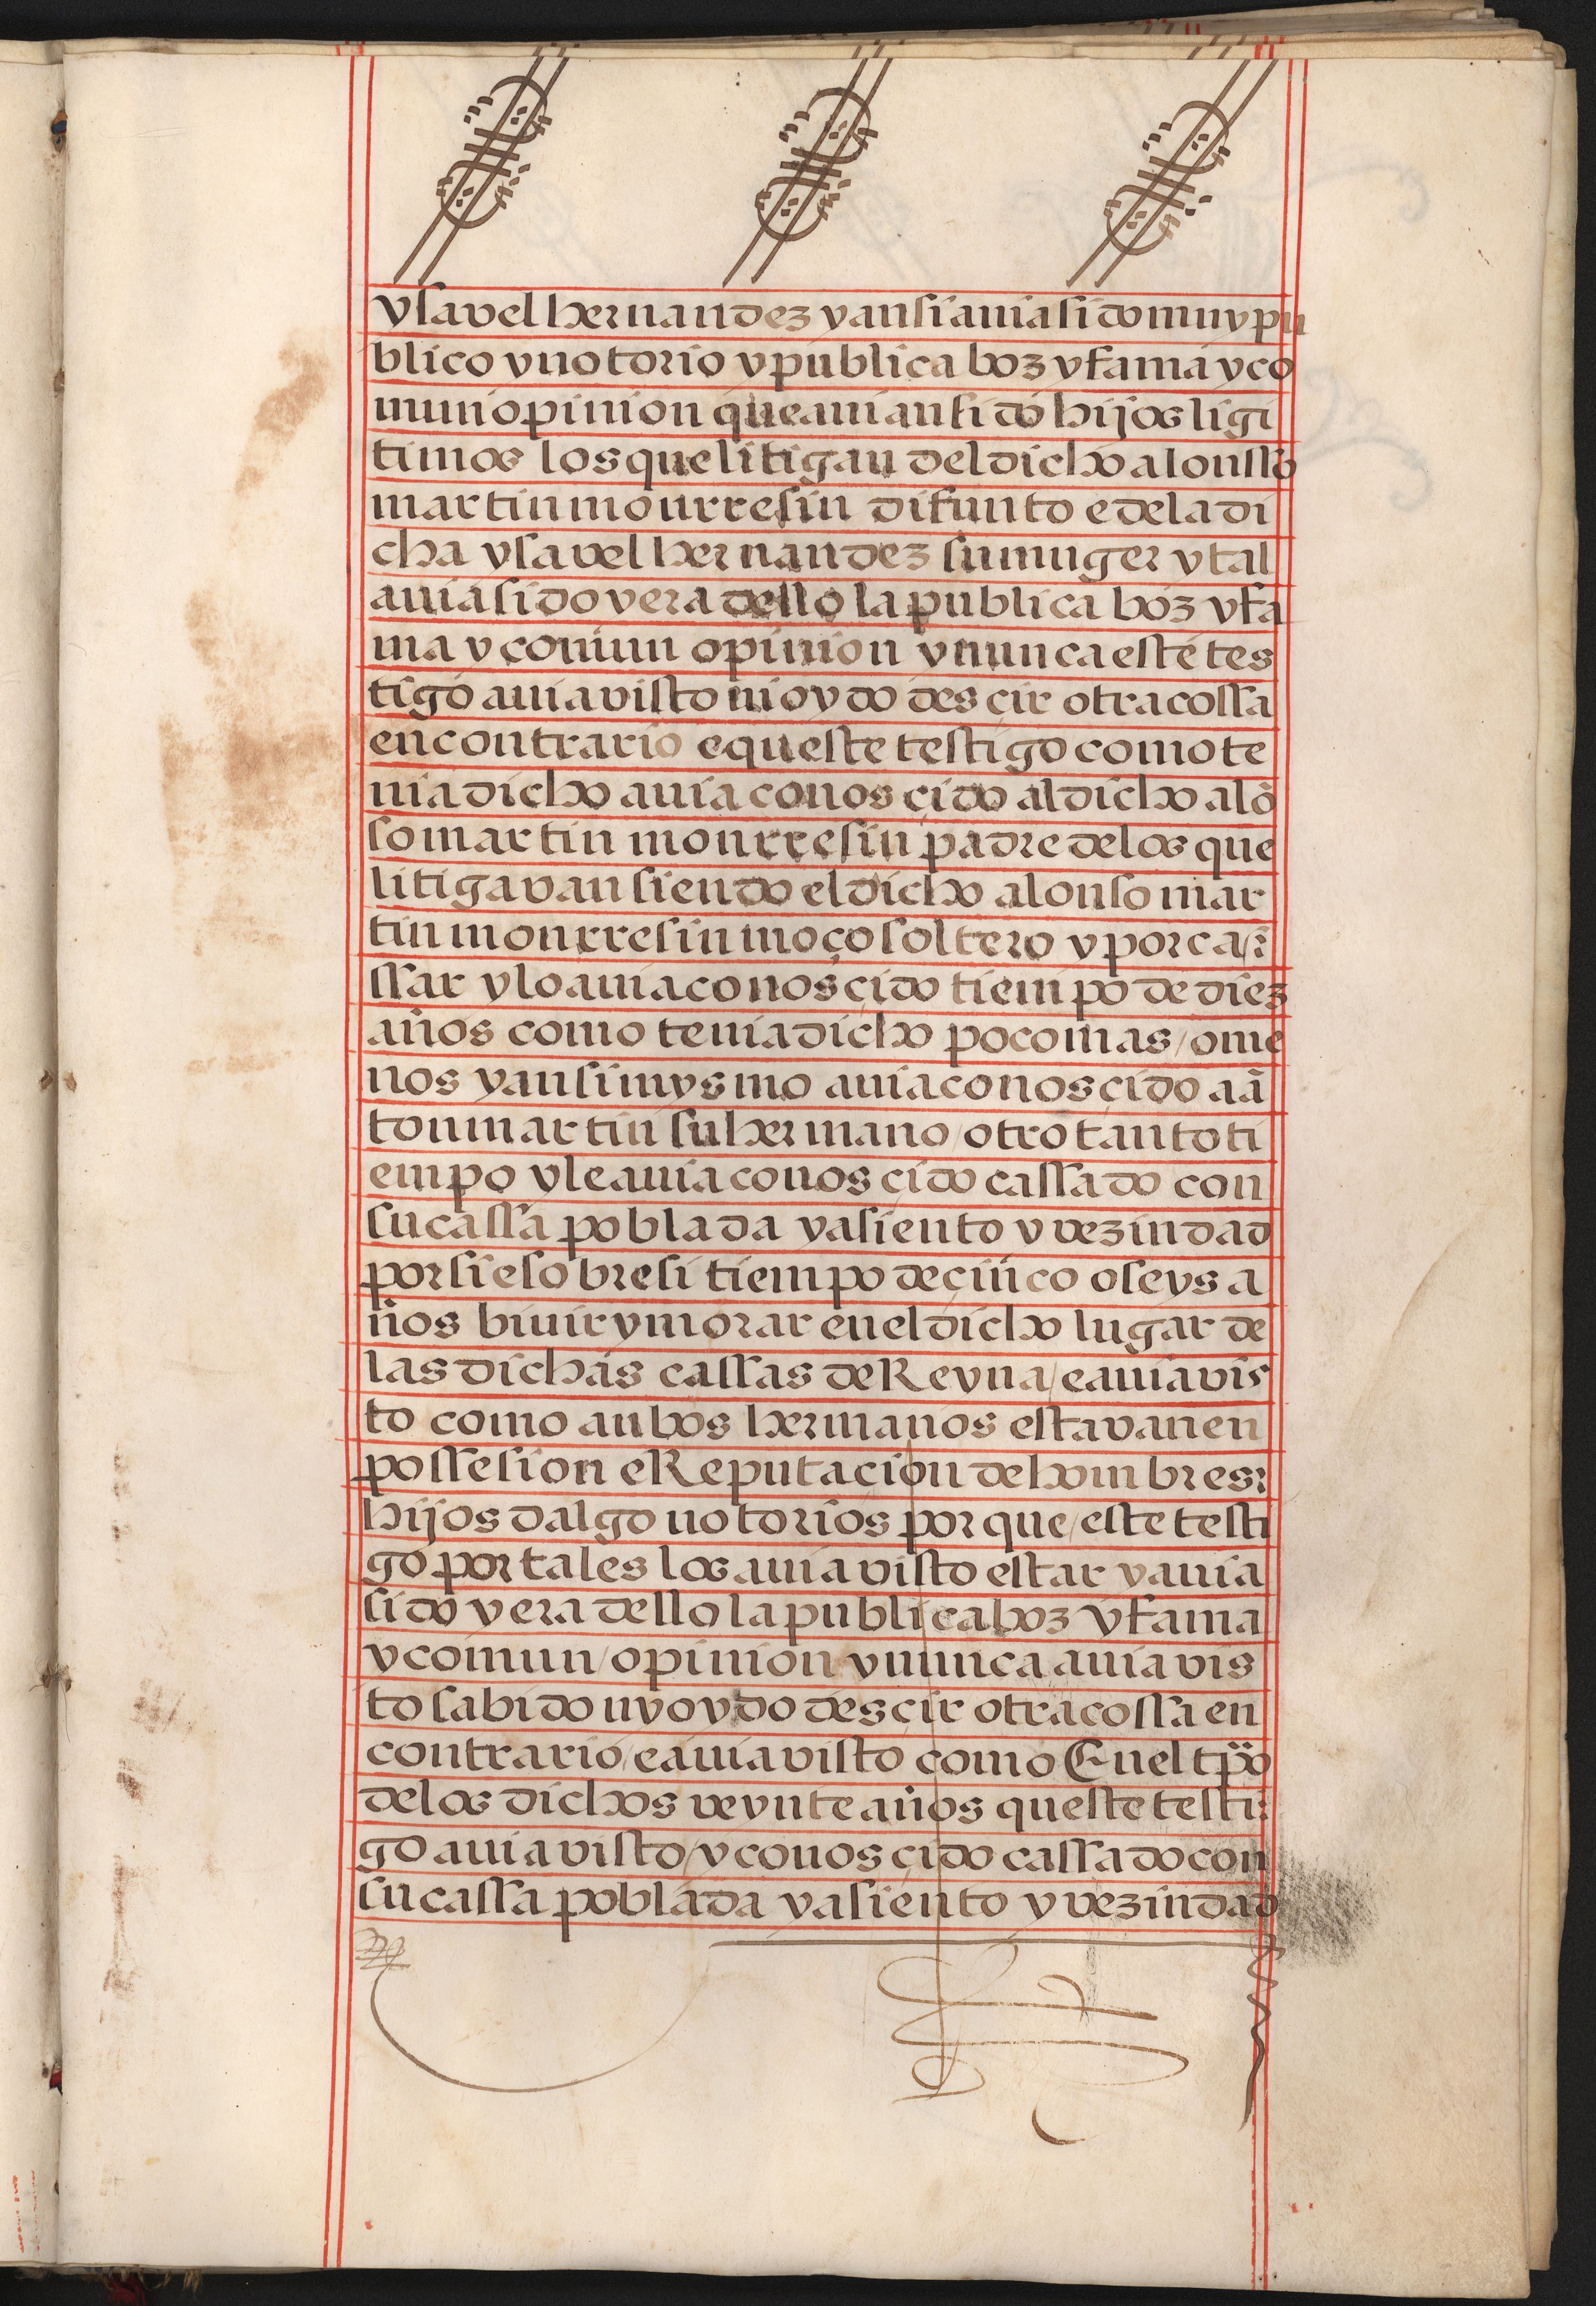 ysavel hernandez y ansi avia sido muy pu
blico y notorio y publica boz y fama y co
mun opinion que avian sido hijos ligi
timos los que litigan del dicho alonsso
martin monrresin difunto e de la di
cha ysavel hernandez su muger y tal
avia sido y era dello la publica boz y fa
ma y comun opinion y nunca este tes
tigo avia visto ni oydo desçir otra cossa
en contrario e queste testigo como te
nia dicho avia conosçido al dicho alõ
so martin monrresin padre de los que
litigavan siendo el dicho alonso mar
tin monrresin moço soltero y por ca
ssar y lo avia conosçido tiempo de diez
años como tenia dicho poco mas / o me
nos y ansimysmo avia conosçido a ã
ton martin su hermano / otro tanto ti
empo y le avia conosçido cassado con
su cassa poblada y asiento y vezindad
por si e sobre si tiempo de çinco o seys a
ños bivir y morar en el dicho lugar de
las dichas cassas de Reyna / e avia vis
to como anbos hermanos estavan en
possesion e Reputaçion de hombres
hijos dalgo notorios porque / este testi
go por tales los avia visto estar y avia
sido y era dello la publica boz y fama
y comun / opinion y nunca avia vis
to sabido ny oydo desçir otra cossa en
contrario / e avia visto como En el tpõ
de los dichos veynte años queste testi
go avia visto / y conosçido cassado con
su cassa poblada y asiento y vezindad